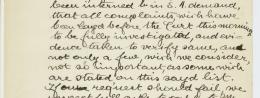 been interned b/ in S.A. demand,
that all complaints wish have
been layed before the Curt this morning
to be fully investigated, and evi-
dence taken to verify same, and
not only a few, wish we consider,
not as important as some wish
are stated on this sayd list.
If our request should fail, we